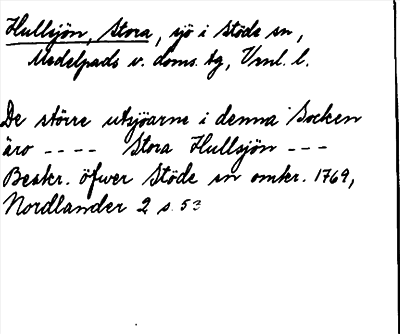 Hullsjön, Stora, sjö i Stöde sn,
Medelpads v. doms. tg, Vnl. l.
De större utsjöarne i denna Socken
äro ---- Stora Hullsjön ---
Beskr. öfwer Stöde sn omkr. 1769,
Nordlander 2 s. 53